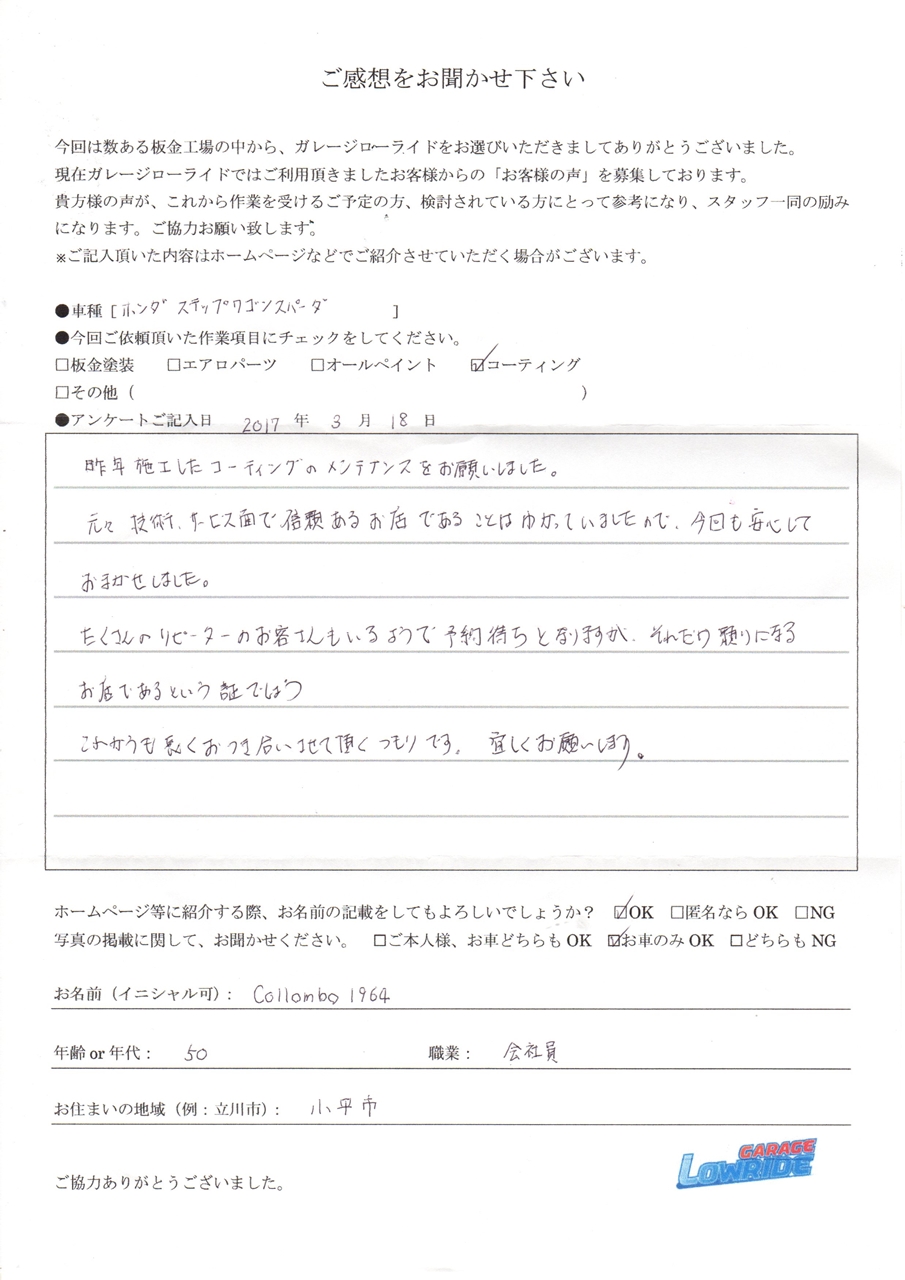 ご感想をお聞かせ下さい
今回は数ある板金工場の中から、ガレージローライドをお選びいただきましてありがとうございました。
現在ガレージローライドではご利用頂きましたお客様からの「お客様の声」を募集しております。
貴方様の声が、これから作業を受けるご予定の方、検討されている方にとって参考になり、スタッフ一同の励み
になります。ご協力お願い致します。
※ご記入頂いた内容はホームページなどでご紹介させていただく場合がございます。
●車種 [ ホンダ ステップワゴンスパーダ ]
●今回ご依頼頂いた作業項目にチェックをしてください。
□板金塗装 □エアロパーツ □オールペイント ☑コーティング
□その他 ( )
●アンケートご記入日 2017 年 3 月 18 日
昨年施工したコーティングのメンテナンスをお願いしました。
元々技術、サービス面で信頼あるお店であることはわかっていましたので、今回も安心して
おまかせしました。
たくさんのリピーターのお客さんもいるようで予約待ちとなりますが、それだけ頼りになる
お店であるという証ではつ
これからも長くおつき合いさせて頂くつもりです。 宜しくお願いします。
ホームページ等に紹介する際、お名前の記載をしてもよろしいでしょうか? ☑OK □匿名なら OK □NG
写真の掲載に関して、お聞かせください。 □ご本人様、お車どちらも OK ☑お車のみ OK □どちらも NG
お名前(イニシャル可): Collombo 1964
年齢 or 年代: 50 職業: 会社員
お住まいの地域(例:立川市): 小平市
GARAGE
LOWRIDE
ご協力ありがとうございました。